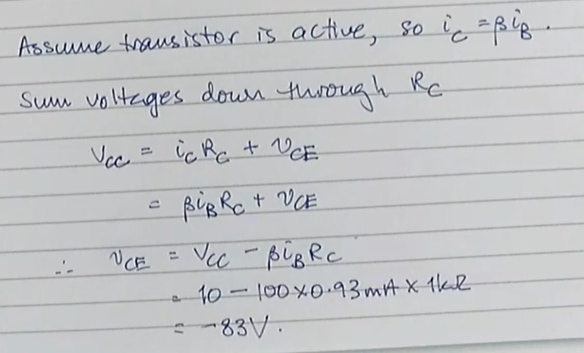 Assume transistor is active, so i_C = βi_B.
Sum voltages down through R_C
V_CC = i_C R_C + v_CE
= βi_B R_C + v_CE
∴ v_CE = V_CC - βi_B R_C
= 10 - 100 × 0.93mA × 1kΩ
= -83V.